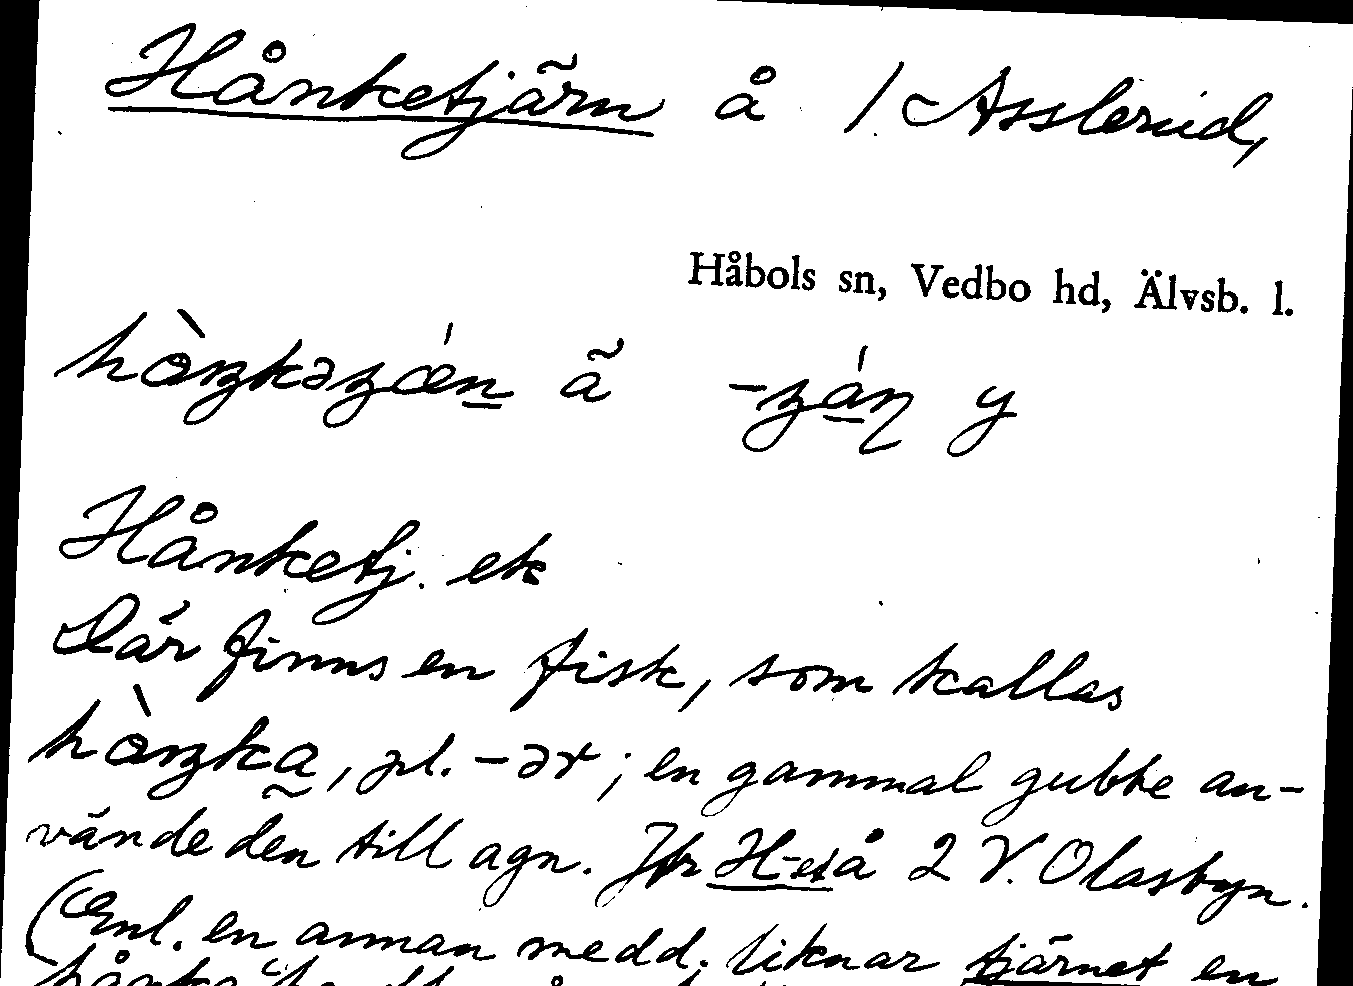 Hånketjärn å 1 Asslerud,
Håbols sn, Vedbo hd, Älvsb. l.
Hånketj. ek
Där finns en fisk, som kallas
pl. -ər; en gammal gubbe an-
vände den till agn. Jfr H-et å 2 V. Olasbyn.
(Enl. en annan medd. liknar tjärnet en